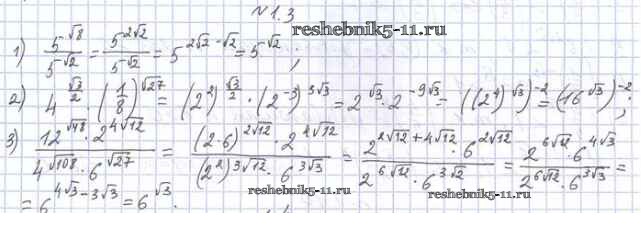 №1.3
reshebnik5-11.ru
1) 5^√8 / 5^√2 = 5^2√2 / 5^√2 = 5^(2√2 - √2) = 5^√2 ;
2) 4^(√3/2) · (1/8)^√27 = (2^2)^(√3/2) · (2^-3)^3√3 = 2^√3 · 2^-9√3 = ((2^4)^√3)^-2 = (16^√3)^-2 ;
3) 12^√48 · 2^4√12 / 4^√108 · 6^√27 = (2·6)^2√12 · 2^4√12 / (2^2)^3√12 · 6^3√3 = 2^(2√12 + 4√12) · 6^2√12 / 2^6√12 · 6^3√2 = 2^6√12 · 6^4√3 / 2^6√12 · 6^3√3 =
= 6^(4√3 - 3√3) = 6^√3 .
reshebnik5-11.ru